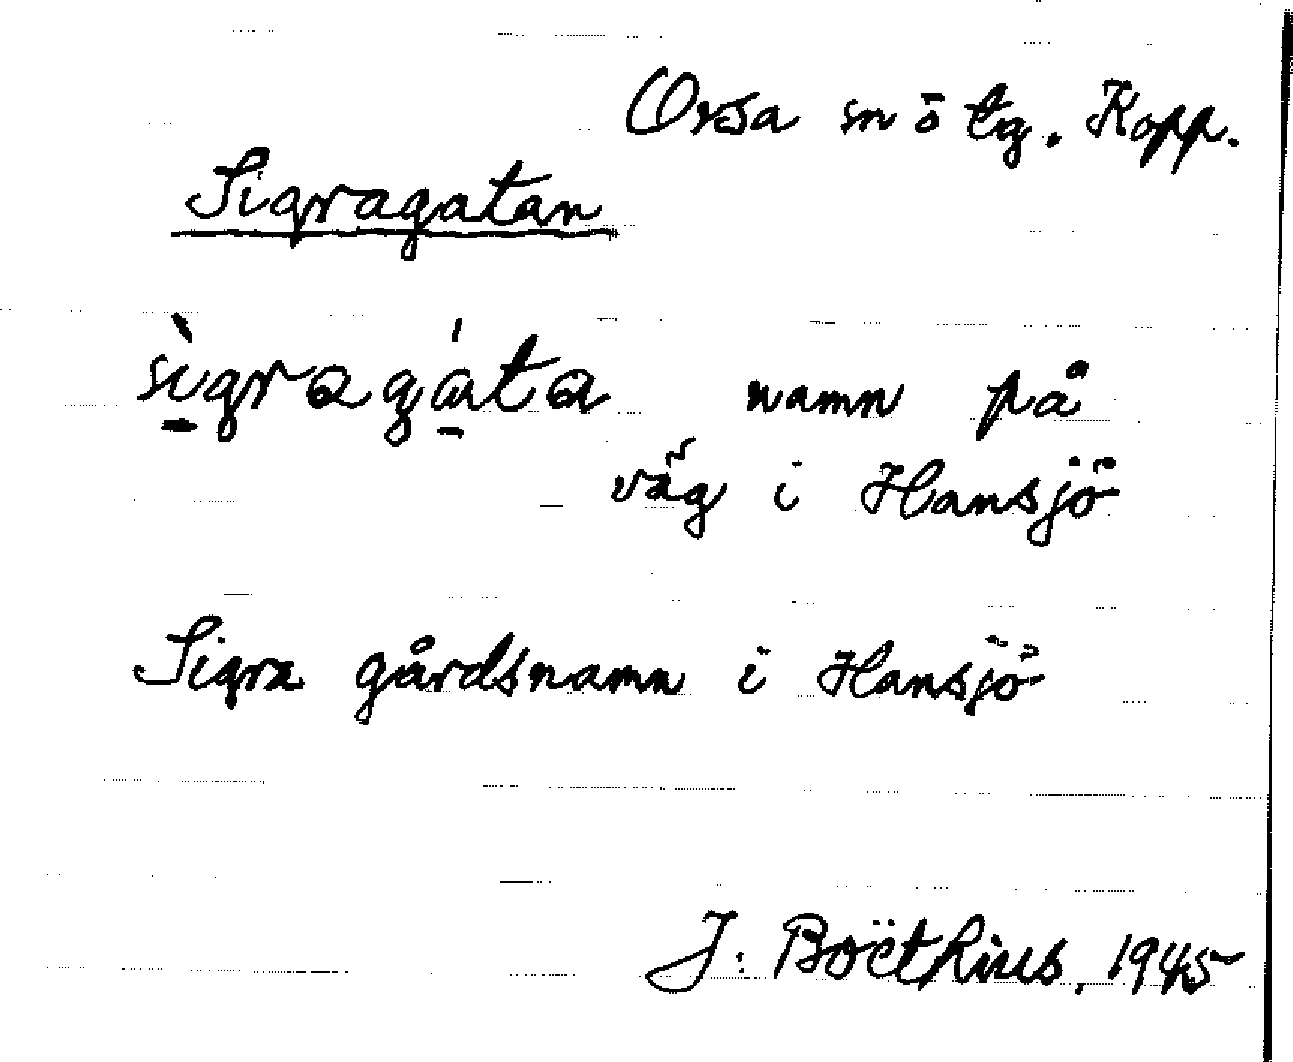 Orsa sn ö tg. Kopp.
Sigragatan
sìgragáta namn på
väg i Hansjö
Sigra gårdsnamn i Hansjö
J. Boëthius, 1945